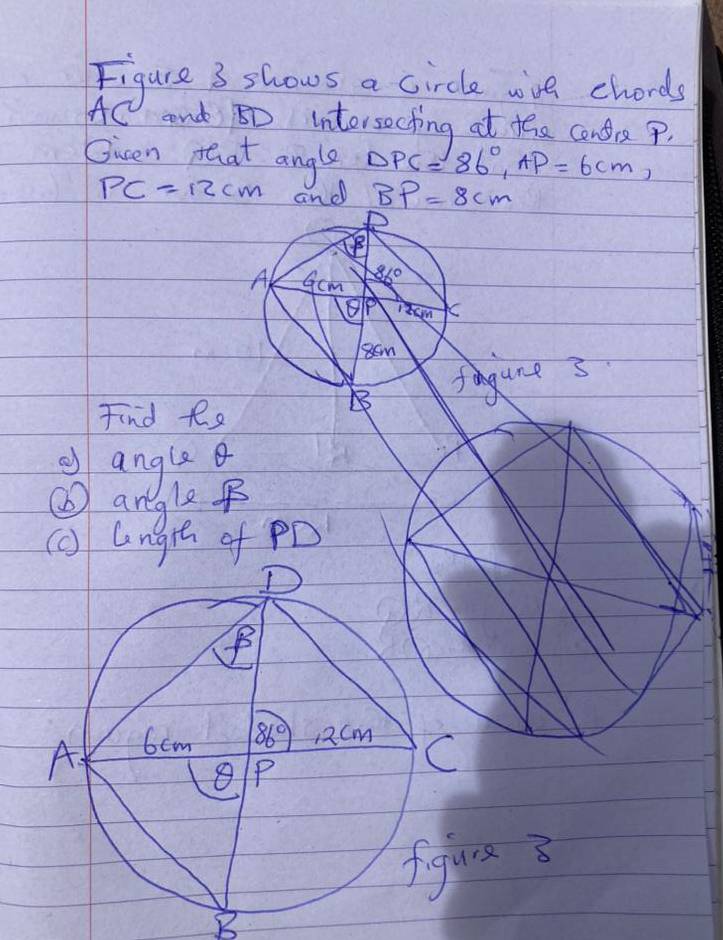 Figure 3 shows a Circle with chords
AC and BD intersecting at the centre P.
Given that angle DPC = 86°, AP = 6cm,
PC = 12cm and BP = 8cm
D
β
A
6cm
86°
θ
P
12cm
C
8cm
B
figure 3
Find the
a) angle θ
(b) angle β
(c) length of PD
D
β
A
6cm
86°
12cm
C
θ
P
B
figure 3